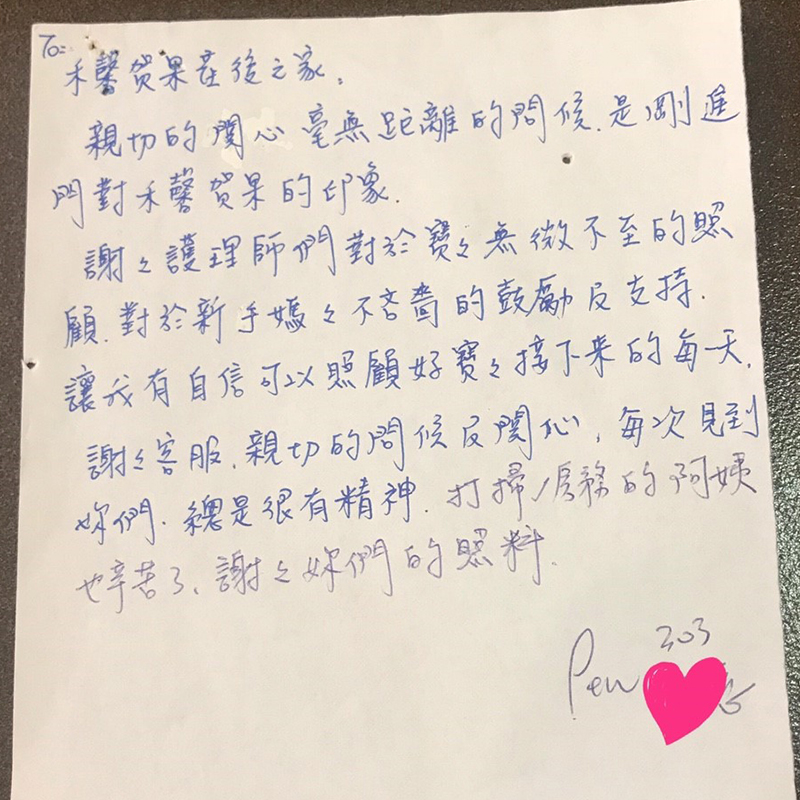 To:
禾馨贺果產後之家。
親切的関心毫無距離的問候.是剛進
門對禾馨贺果的印象.
謝々護理師們對於寶々無微不至的照
顧.對於新手媽々不吝嗇的鼓勵及支持.
讓我有自信可以照顧好寶々接下来的每一天.
謝々客服.親切的問候及関心,每次見到
妳們.總是很有精神.打掃/房務的阿姨
也辛苦了、謝々妳們的照料.
303